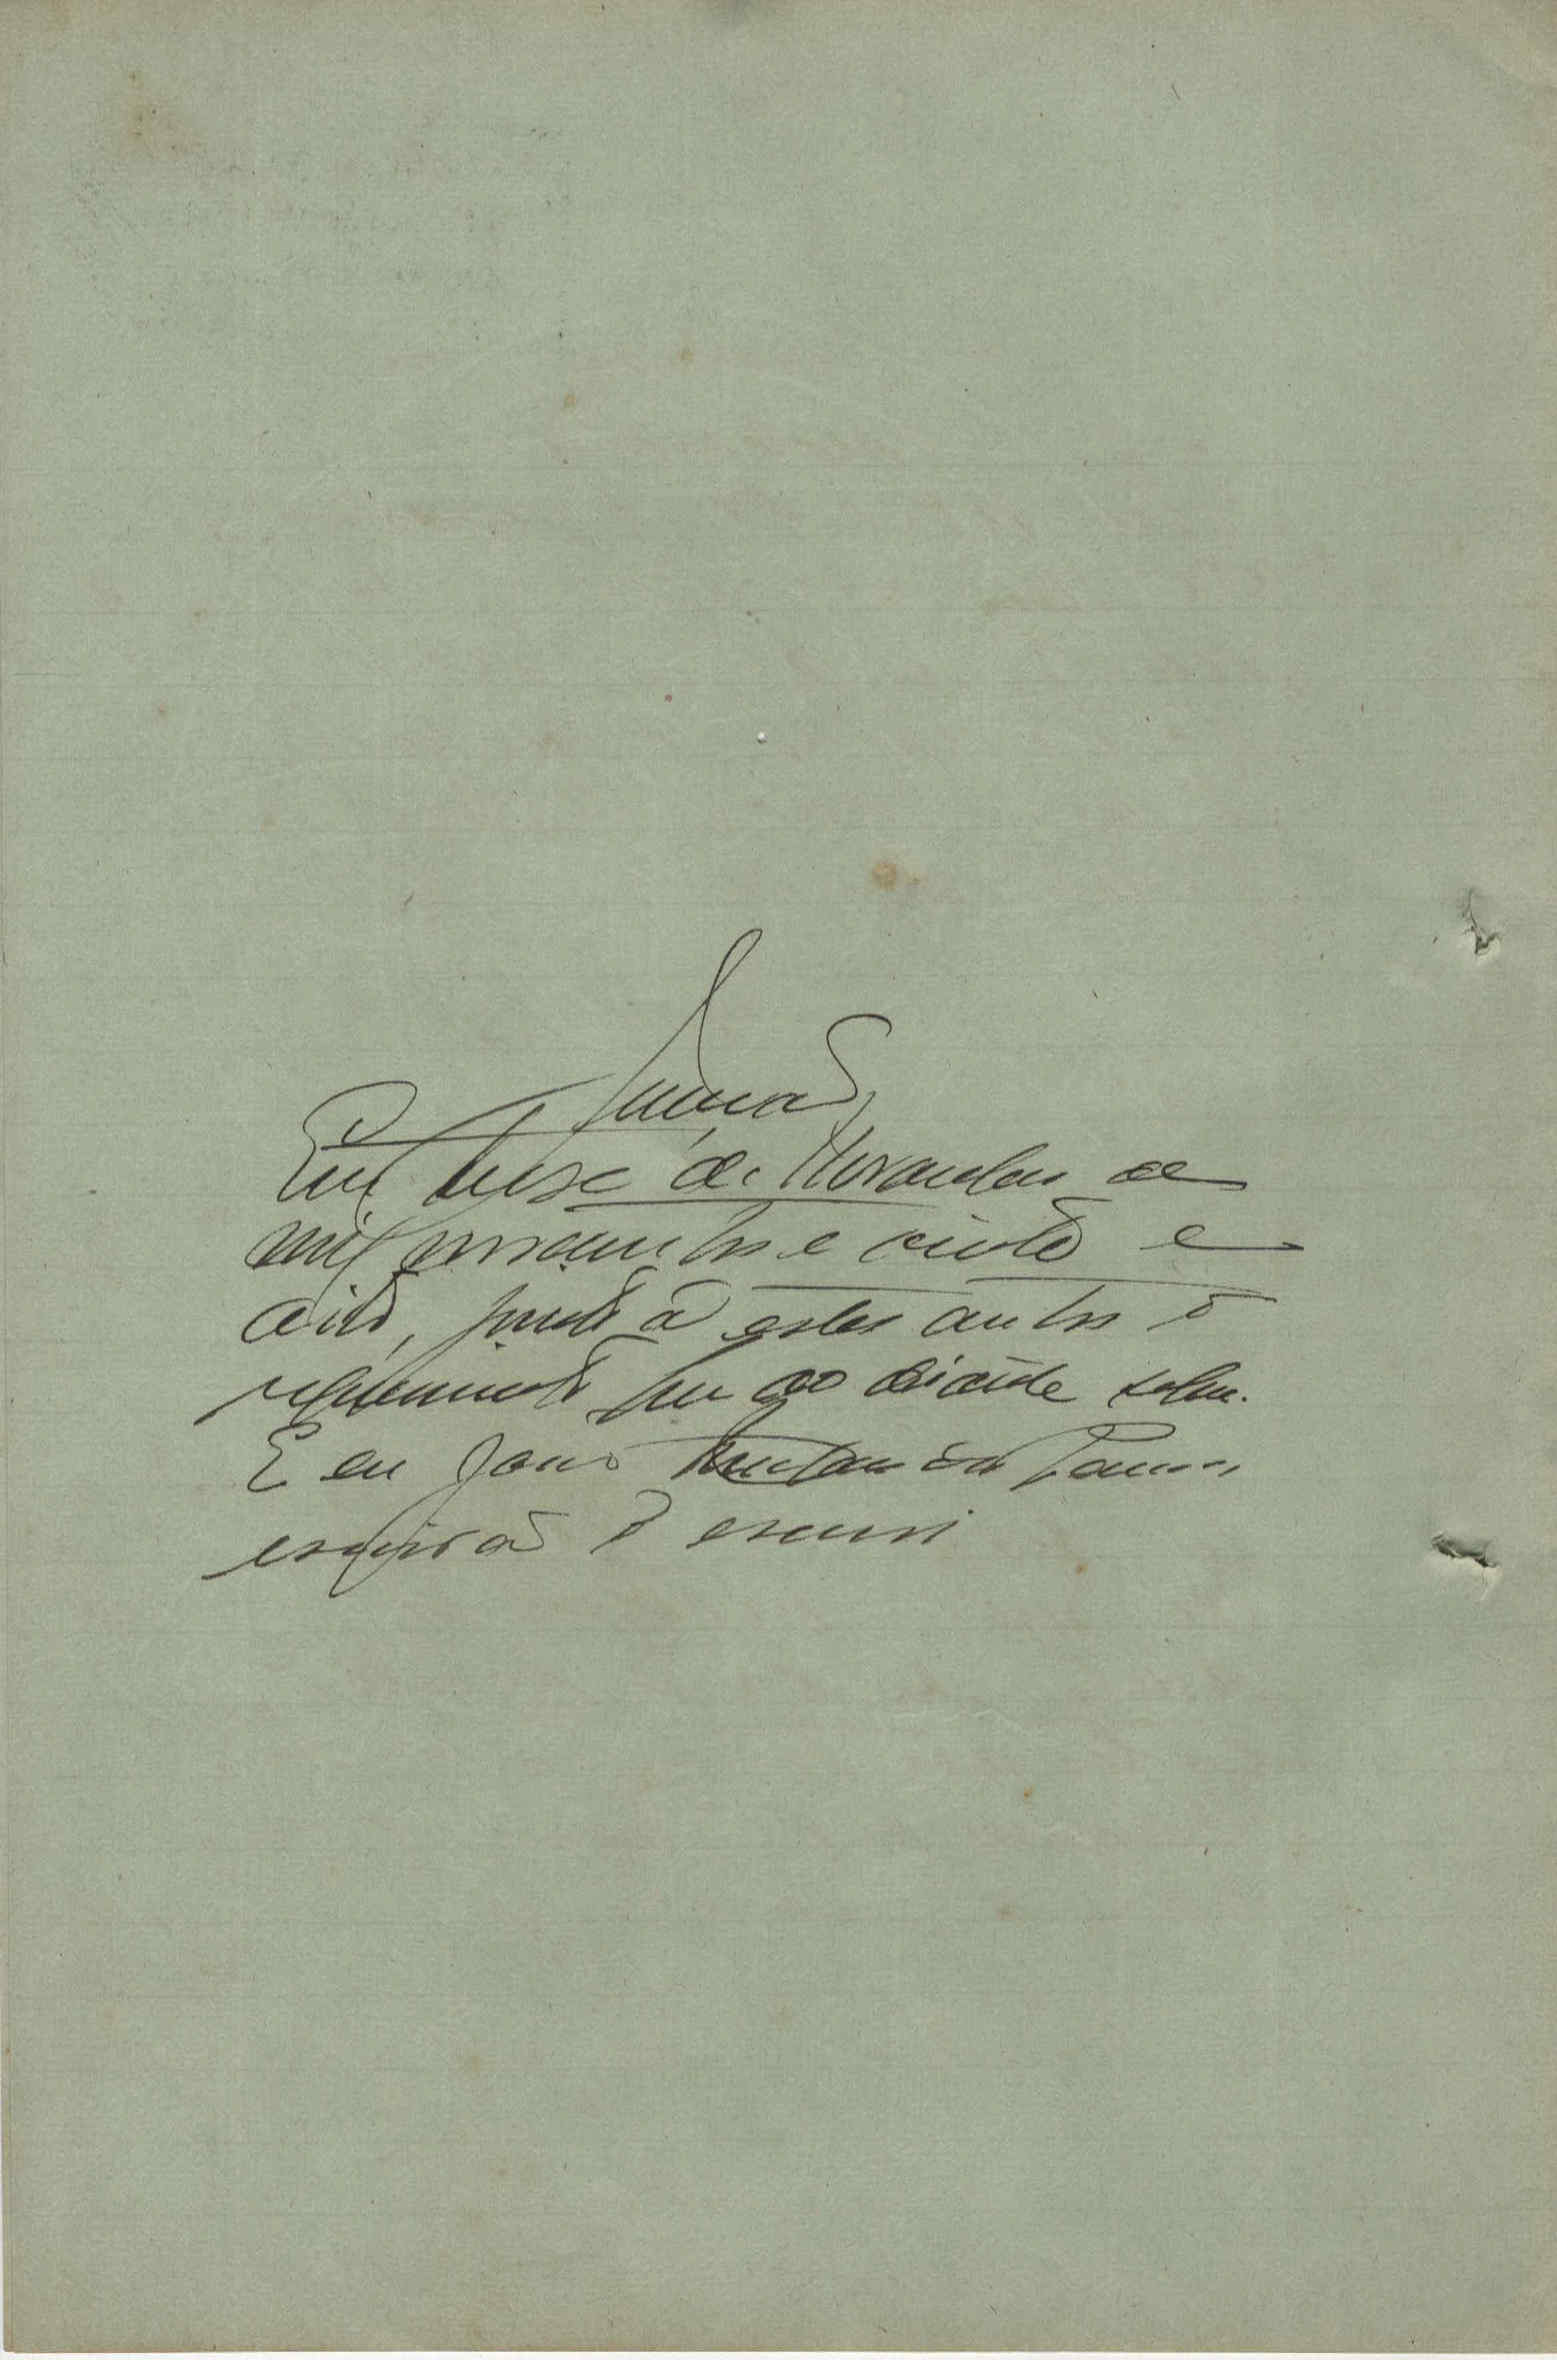 Juntada
Em treze de Novembro de
mil novecentos e vinte e
oito, junto a estes autos o
requerimento que se
E eu João da
escrivão o escrevi